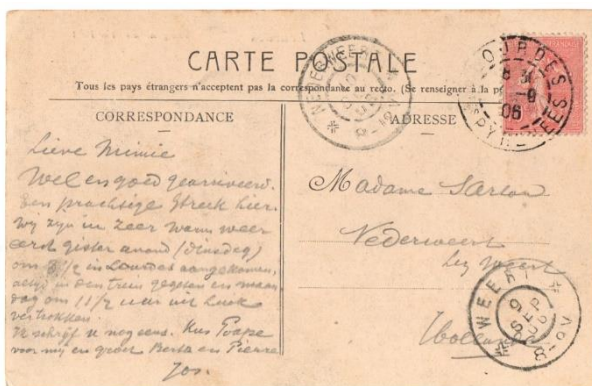 CARTE POSTALE
Tous les pays étrangers n'acceptent pas la correspondance au recto. (Se renseigner à la
CORRESPONDANCE
ADRESSE
LOURDES
8 30
9
06
PYRÉNÉES
NEDERWEERT
8-12V
Lieve Mimie
Wel en goed gearriveerd.
Een prachtige streek hier.
Wij zijn in zeer warm weer
eerst gister avond (dinsdag)
om 1/2 in Lourdes aangekomen,
in den trein gezeten en maan
dag om 11 1/2 uur uit Luik
vertrokken.
Ik schrijf u nog eens. Kus
voor mij en groet Berta en Pierre
Jos.
Madame
Nederweert
lez Weert
Holland
WEERT
SEP
8-9V